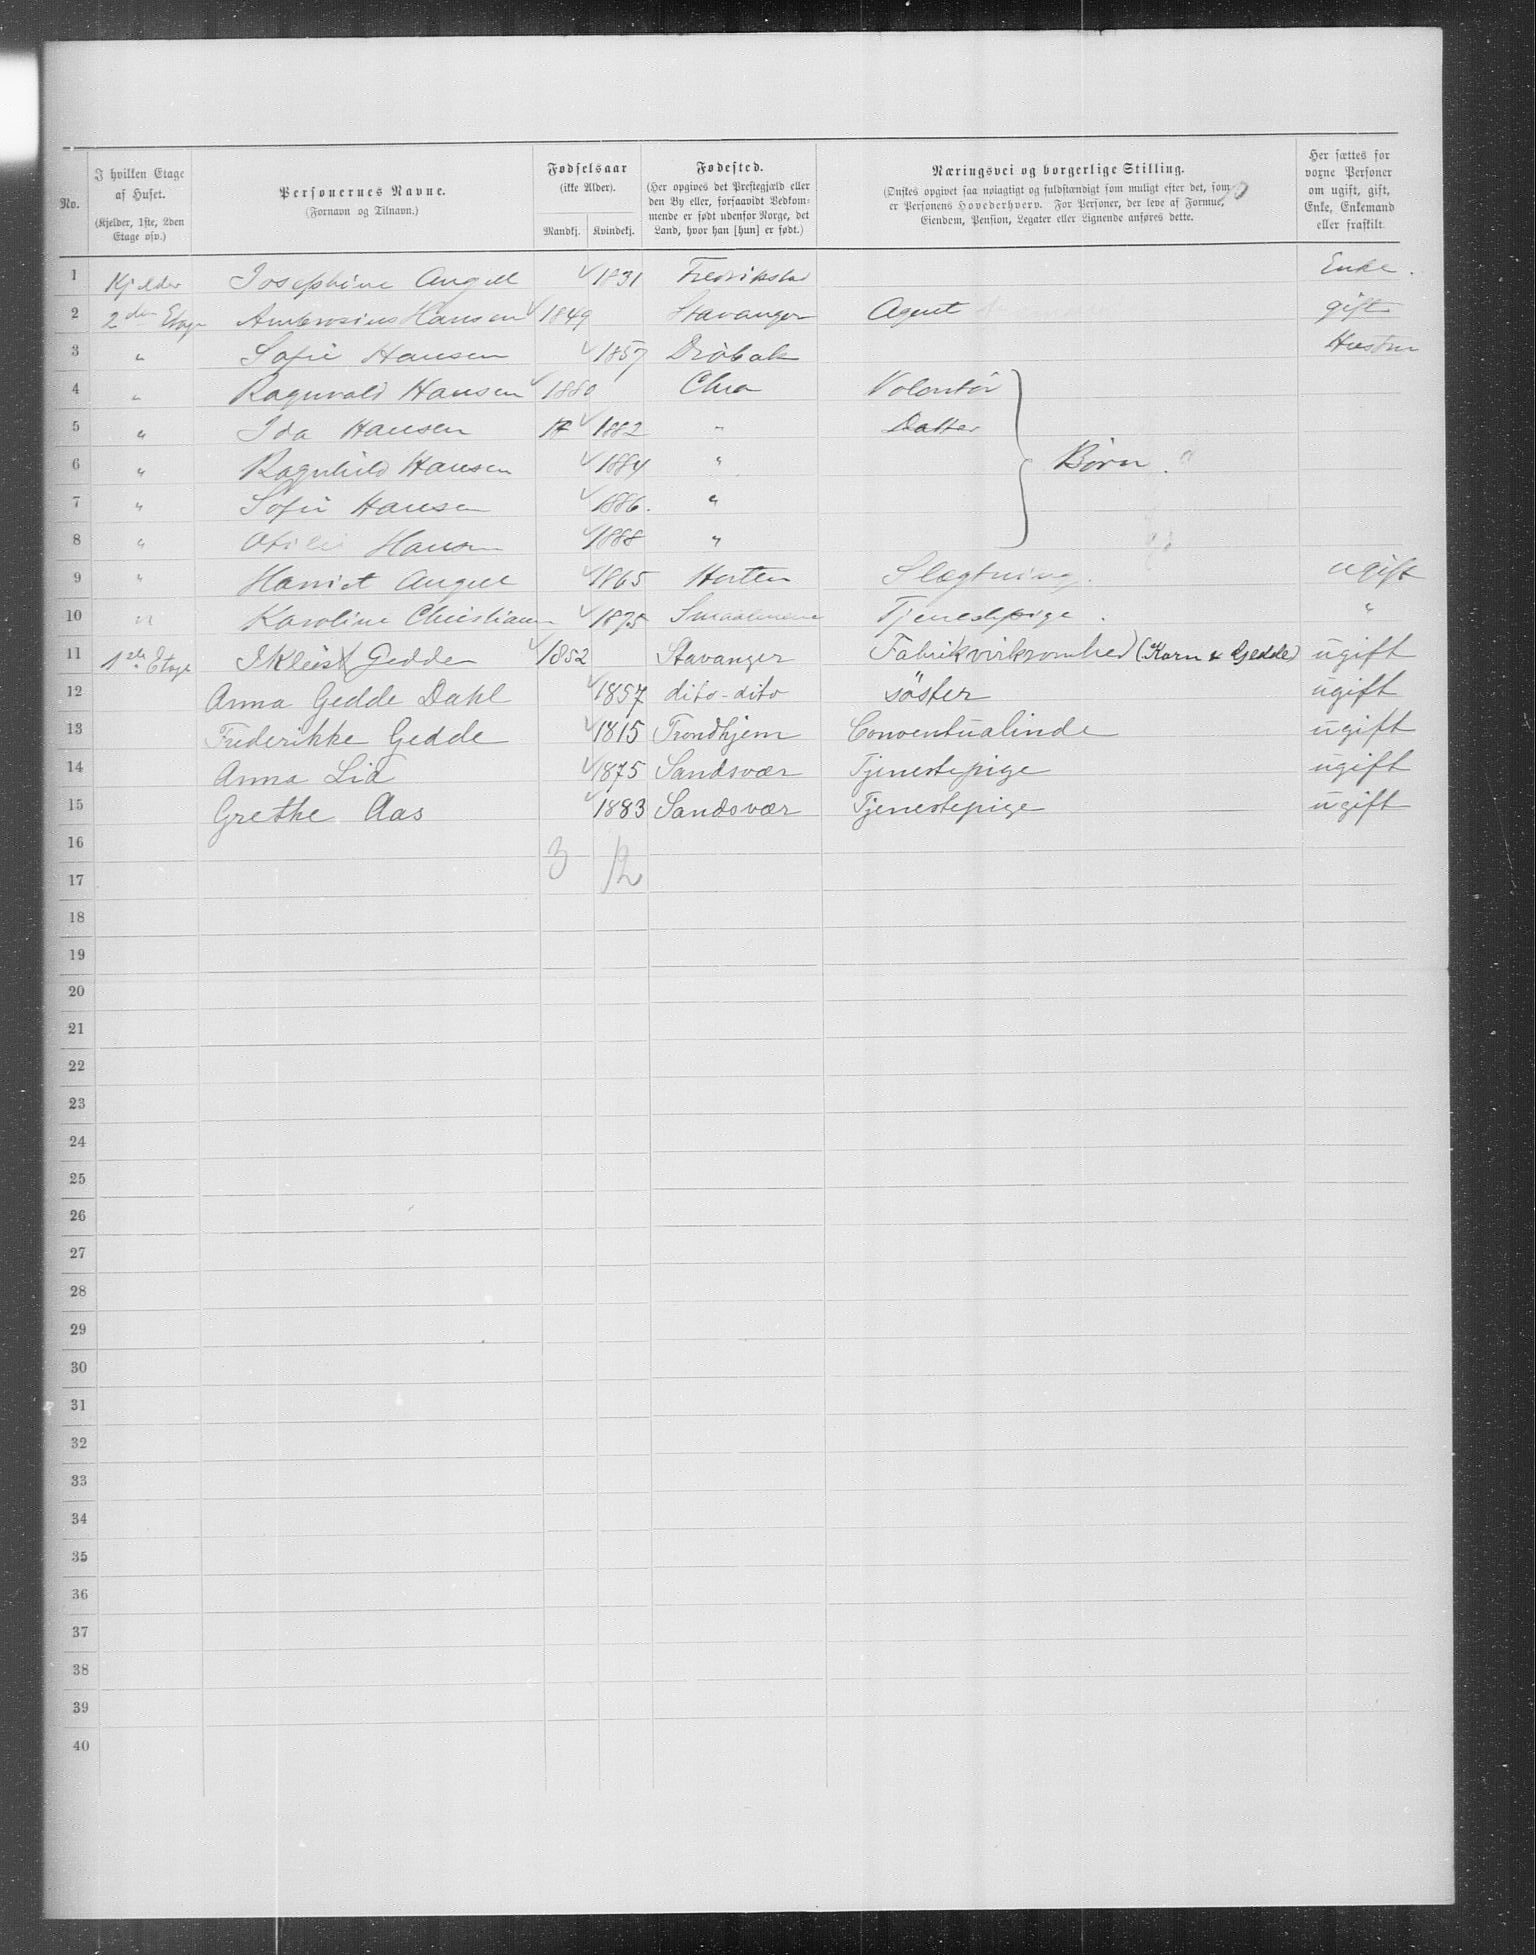 No. I hvilken Etage af Huset. (Kjelder, 1ste, 2den Etage osv.) Personernes Navne. (Fornavn og Tilnavn.) Fødselsaar (ikke Alder). Mandkj. Kvindekj. Fødested. (Her opgives det Prestegjæld eller den By eller, forsaavidt Vedkommende er født udenfor Norge, det Land, hvor han [hun] er født.) Næringsvei og borgerlige Stilling. (Ønskes opgivet saa nøiagtigt og fuldstændigt som muligt efter det, som er Personens Hovederhverv. For Personer, der leve af Formue, Eiendom, Pension, Legater eller Lignende anføres dette. Her sættes for voxne Personer om ugift, gift, Enke, Enkemand eller fraskilt.
1 Kjelder Josephine Angell 1831 Fredrikstad Enke.
2 2den Etage Ambrosius Hansen 1849 Stavanger Agent gift
3 " Sofie Hansen 1857 Drøbak Hustru
4 " Ragnvald Hansen 1880 Chra Volontør
5 " Ida Hansen 18 1882 " Datter
6 " Ragnhild Hansen 1884 " Børn.
7 " Sofie Hansen 1886. "
8 " Otilie Hansen 1888 "
9 " Harriet Angell 1865 Horten Slægtning. ugift
10 " Karoline Christiansen 1875 Smaalenene Tjenestpige. "
11 1ste Etage I Kleist Gedde 1852 Stavanger Fabrikvirksomhed (Korn & Gedde) ugift
12 Anna Gedde Dahl 1857 dito-dito søster ugift
13 Frederikke Gedde 1815 Trondhjem Conventualinde ugift
14 Anna Lid 1875 Sandsvær Tjenestepige ugift
15 Grethe Aas 1883 Sandsvær Tjenestepige ugift
16 3 12
17
18
19
20
21
22
23
24
25
26
27
28
29
30
31
32
33
34
35
36
37
38
39
40